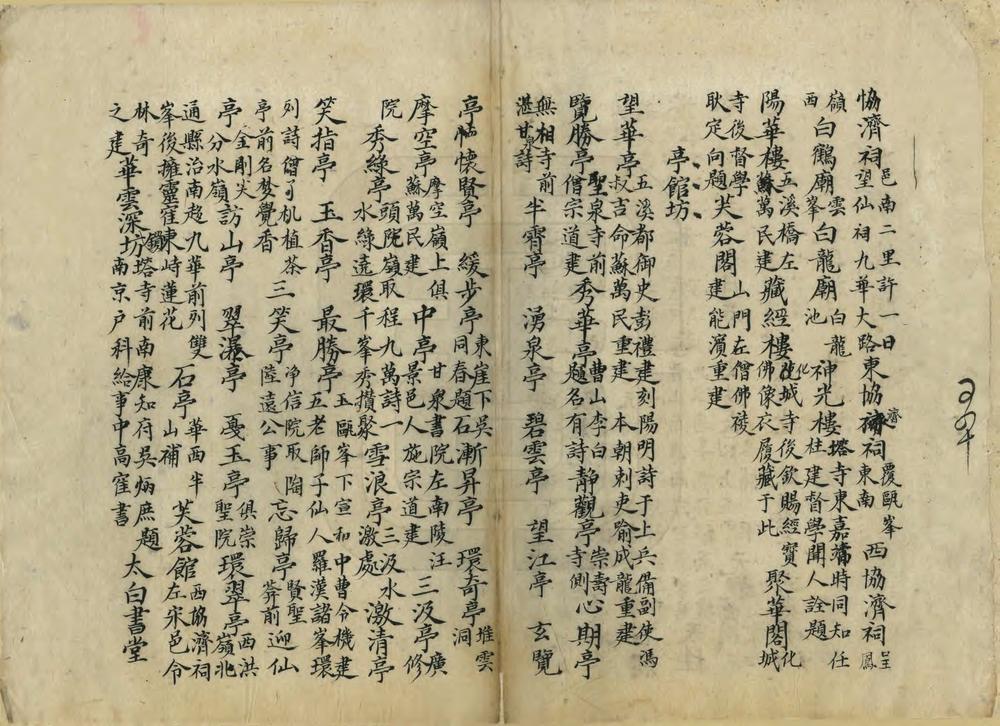 協濟祠邑南二里許一日望仙祠九華大路東協濟祠覆甌峯東南西協濟祠呈鳳
嶺白鶴廟雲峯白龍廟白龍池神光樓塔寺東嘉靖時同知任柱建督學聞人詮題
西陽華樓五溪橋左蘇萬民建藏經樓化城寺後欽賜經寶佛像衣履藏于此聚華閣化城
寺後督學耿定向題芙蓉閣山門左僧佛稜建能濵重建
亭館坊
望華亭五溪都御史彭禮建刻陽明詩于上兵備副使馮叔吉命蘇萬民重建本朝刺史喻成龍重建
覽勝亭聖泉寺前僧宗道建秀華亭曹山李白題名有詩靜觀亭崇壽寺側心期亭
無相寺前湛甘泉詩半霄亭湧泉亭碧雲亭望江亭玄覽
亭懷賢亭緩步亭東崖下吳同春題石漸昇亭環奇亭堆雲洞
摩空亭摩空嶺上俱蘇萬民建中亭甘泉書院左南陵汪景邑人施宗道建三汲亭廣修
院秀綠亭頭陀嶺取程九萬詩一水綠遶環千峯秀攢聚雪浪亭三汲水激處激清亭
笑指亭玉香亭最勝亭玉甌峯下宣和中曹令機建五老師子仙人羅漢諸峯環
列詩僧可机植茶亭前名梦覺香三笑亭净信院取陶陸遠公事忘歸亭賢聖葬前迎仙
亭金剛尖分水嶺訪山亭翠瀑亭戞玉亭俱崇聖院環翠亭西洪嶺北
通縣治南趋九華前列雙峯後擁靈窪東峙蓮花石亭華西半山補芙蓉館西協濟祠左宋邑令
林奇之建華雲深坊鎖塔寺前南康知府吳炳庶題南京户科給事中高窪書太白書堂